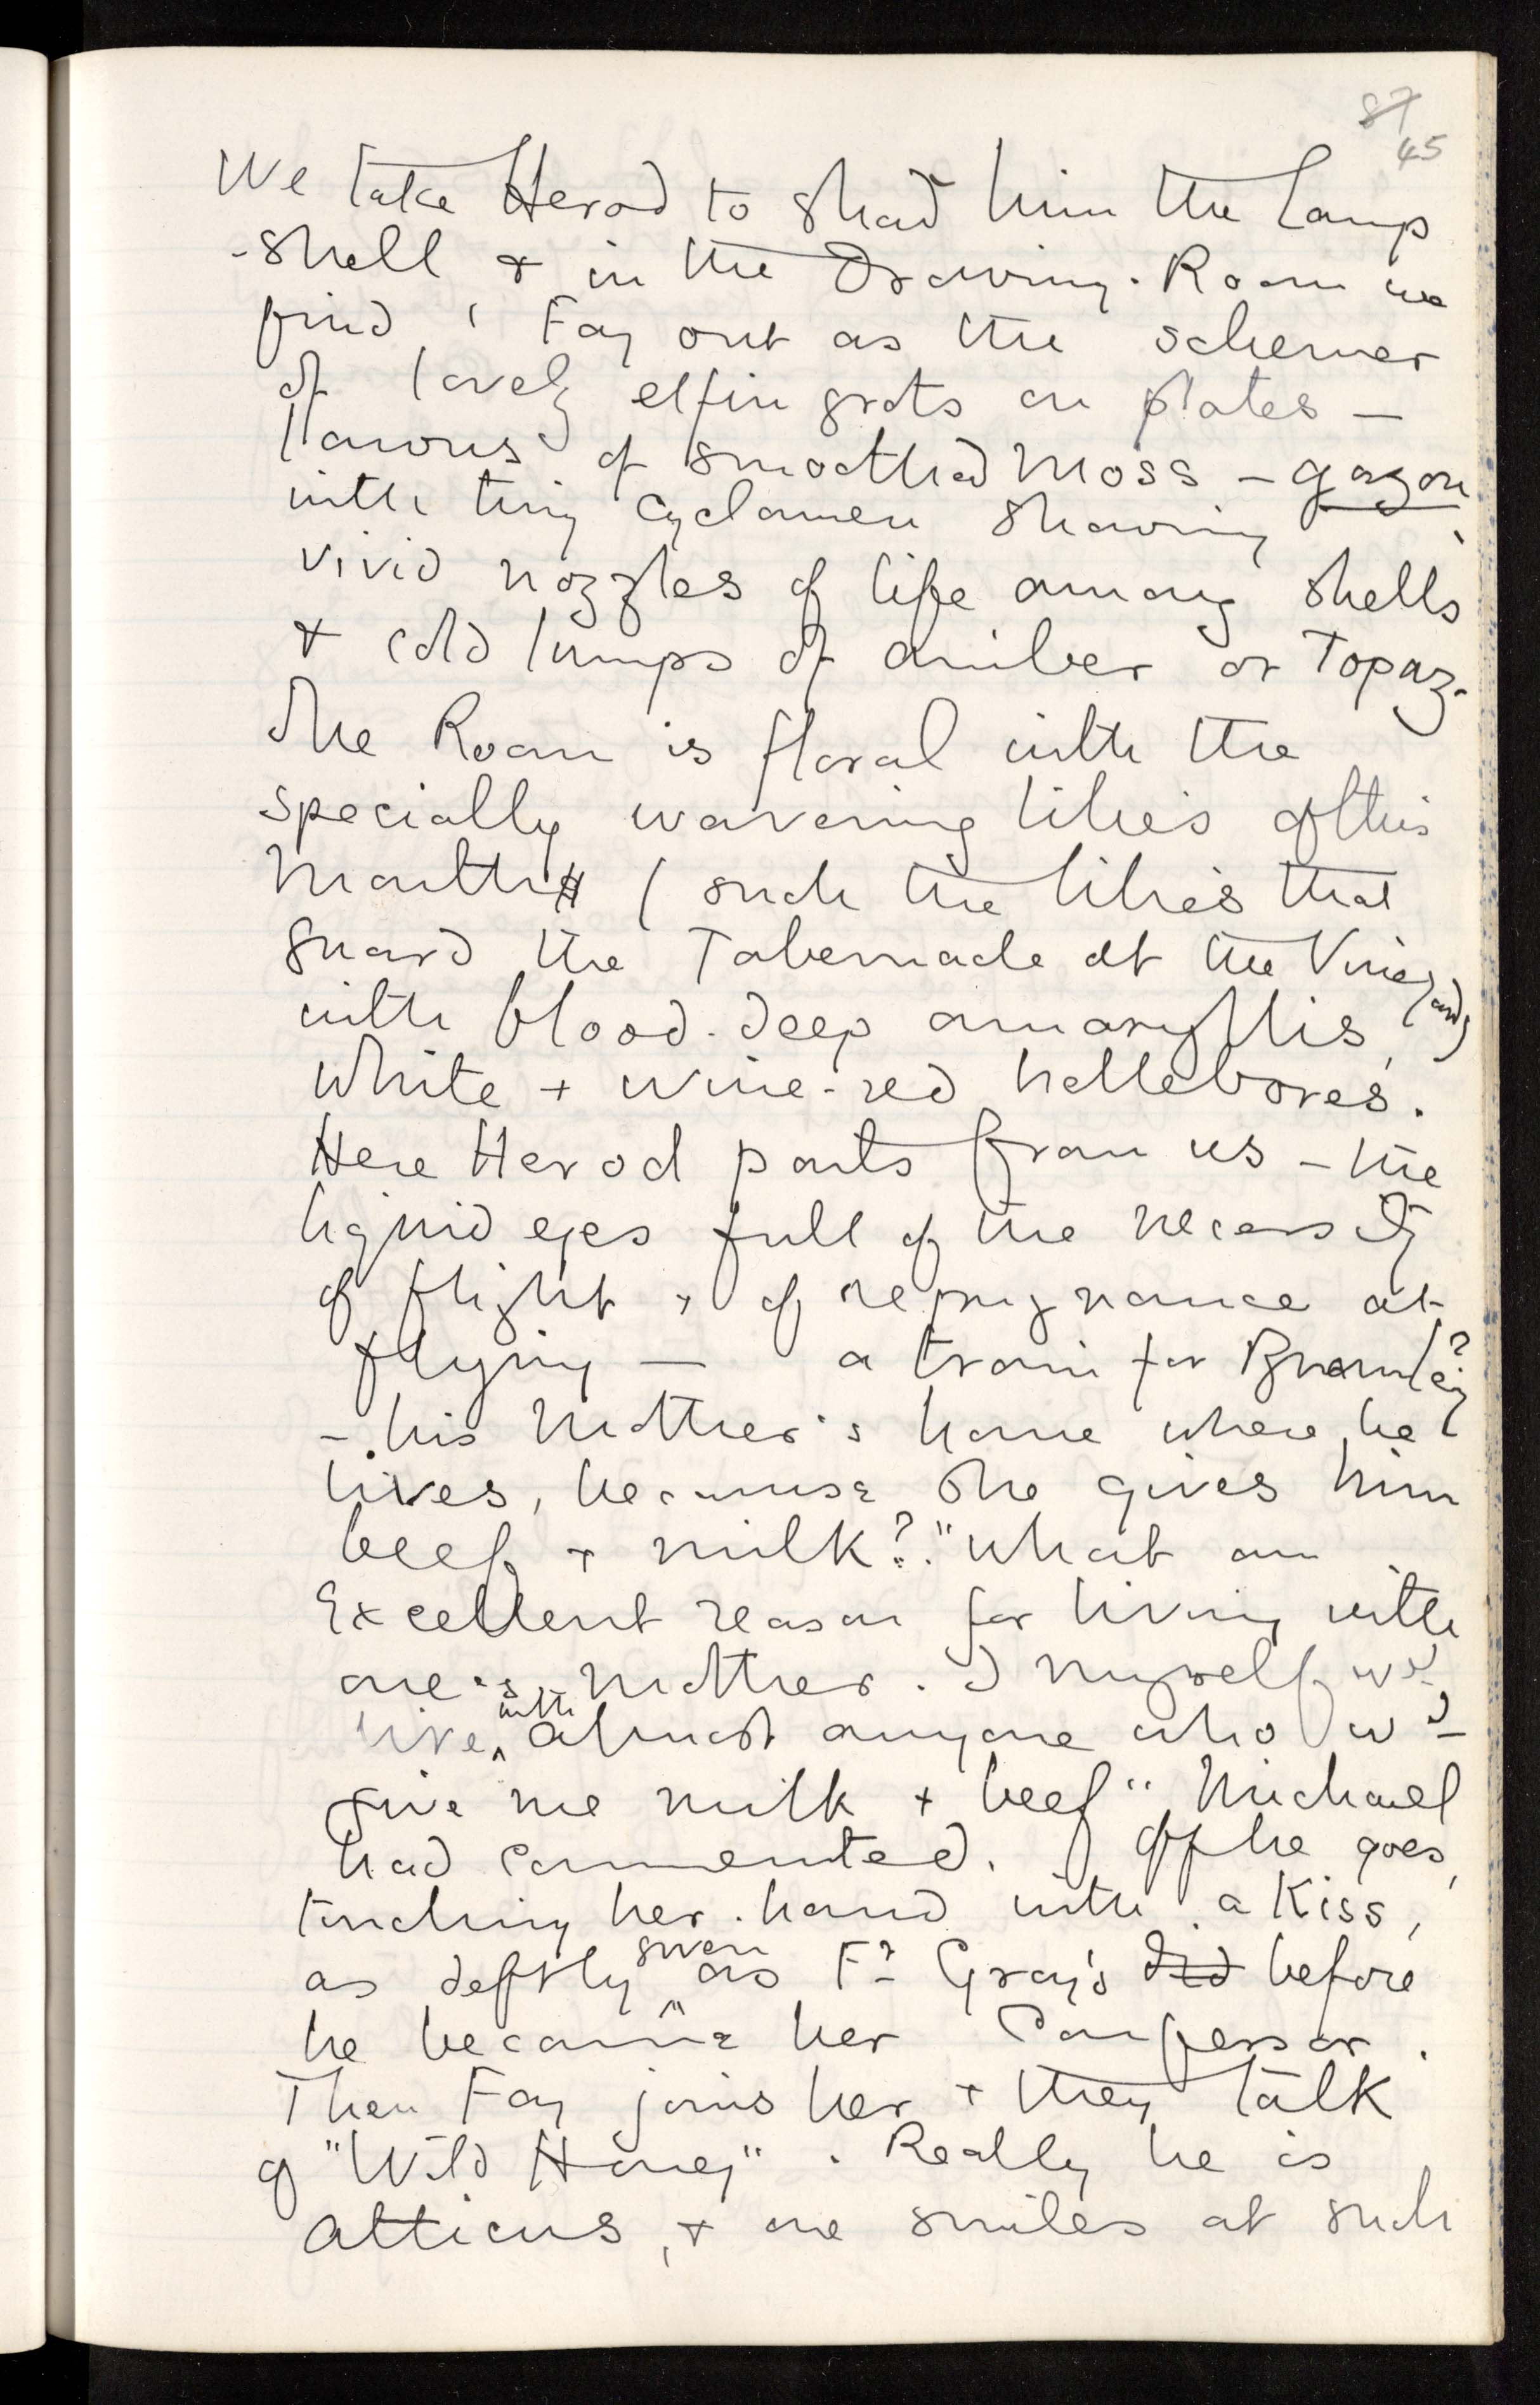 87
45
We take Herod to shad him the Lamp
-shell & in the Drawing-Room we
find ' Fay out as the schemer
of lovely elfin grots on plates —
lawns of smoothed moss - gazon
with tiny cyclamen shaving
vivid nozzles of life among shells
& cold lumps of amber or Topaz.
The Room is floral with the
specially wavering lilies of this
month (such the lilies that
guard the Tabernacle at the Vine)
with blood-deep amaryllis, and
white + wine-red hellebores.
Here Herod parts from us - the
liquid eyes full of the necessity
of flight & of repugnance at
flying — a train for Bromley?
- his Mother's home where he
lives, because she gives him
beef & milk?. "What an
Excellent reason for living with
one's Mother. I myself wd
live with almost anyone who wd
give me milk + beef" Michael
had commented. Off he goes,
touching her hand with a Kiss,
as deftly given as Fr Gray's did before
he became her Confessor.
Then Fay joins her & they talk
of "Wild Honey". Really he is
Atticus, & one smiles at such